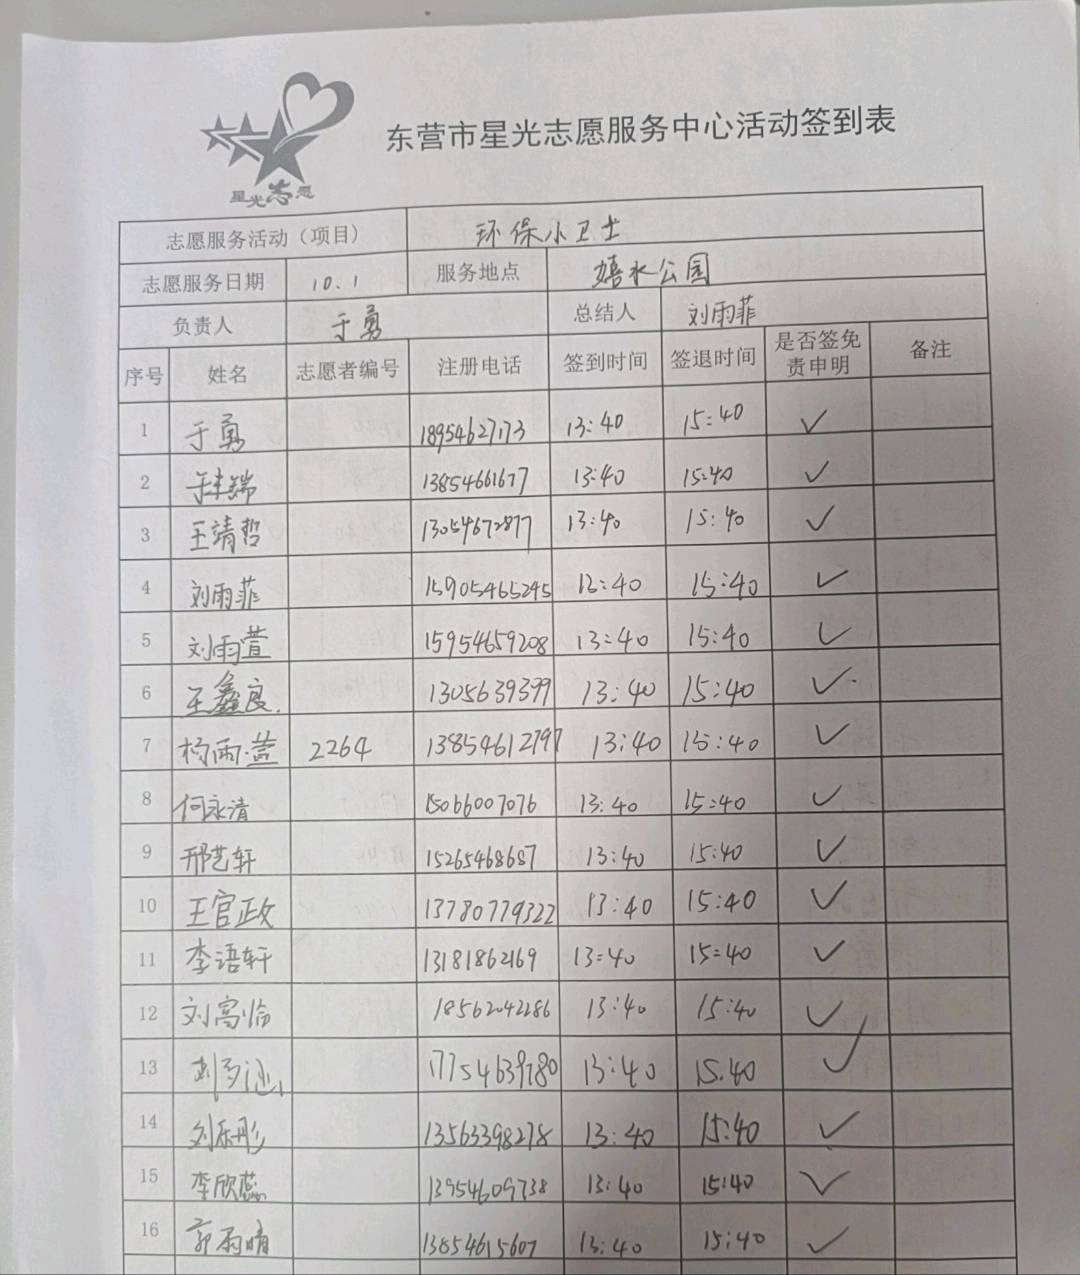 星光志愿
东营市星光志愿服务中心活动签到表
志愿服务活动（项目） 环保小卫士
志愿服务日期 10.1 服务地点 嬉水公园
负责人 于勇 总结人 刘雨菲
序号 姓名 志愿者编号 注册电话 签到时间 签退时间 是否签免责申明 备注
1 于勇 18954627173 13:40 15:40 ✓
2 13854661677 13:40 15:40 ✓
3 王靖哲 13054672877 13:40 15:40 ✓
4 刘雨菲 15905465245 13:40 15:40 ✓
5 刘雨萱 15954659208 13:40 15:40 ✓
6 王鑫良 1305639399 13:40 15:40 ✓
7 2264 13854612797 13:40 15:40 ✓
8 何永清 15066007076 13:40 15:40 ✓
9 邢艺轩 15265468687 13:40 15:40 ✓
10 王官政 13780779322 13:40 15:40 ✓
11 李语轩 13181862169 13:40 15:40 ✓
12 18562042286 13:40 15:40 ✓
13 17754639780 13:40 15.40 ✓
14 刘乐彤 13563398278 13:40 15:40 ✓
15 李欣蕊 13954609738 13:40 15:40 ✓
16 郭雨晴 13854615607 13:40 15:40 ✓